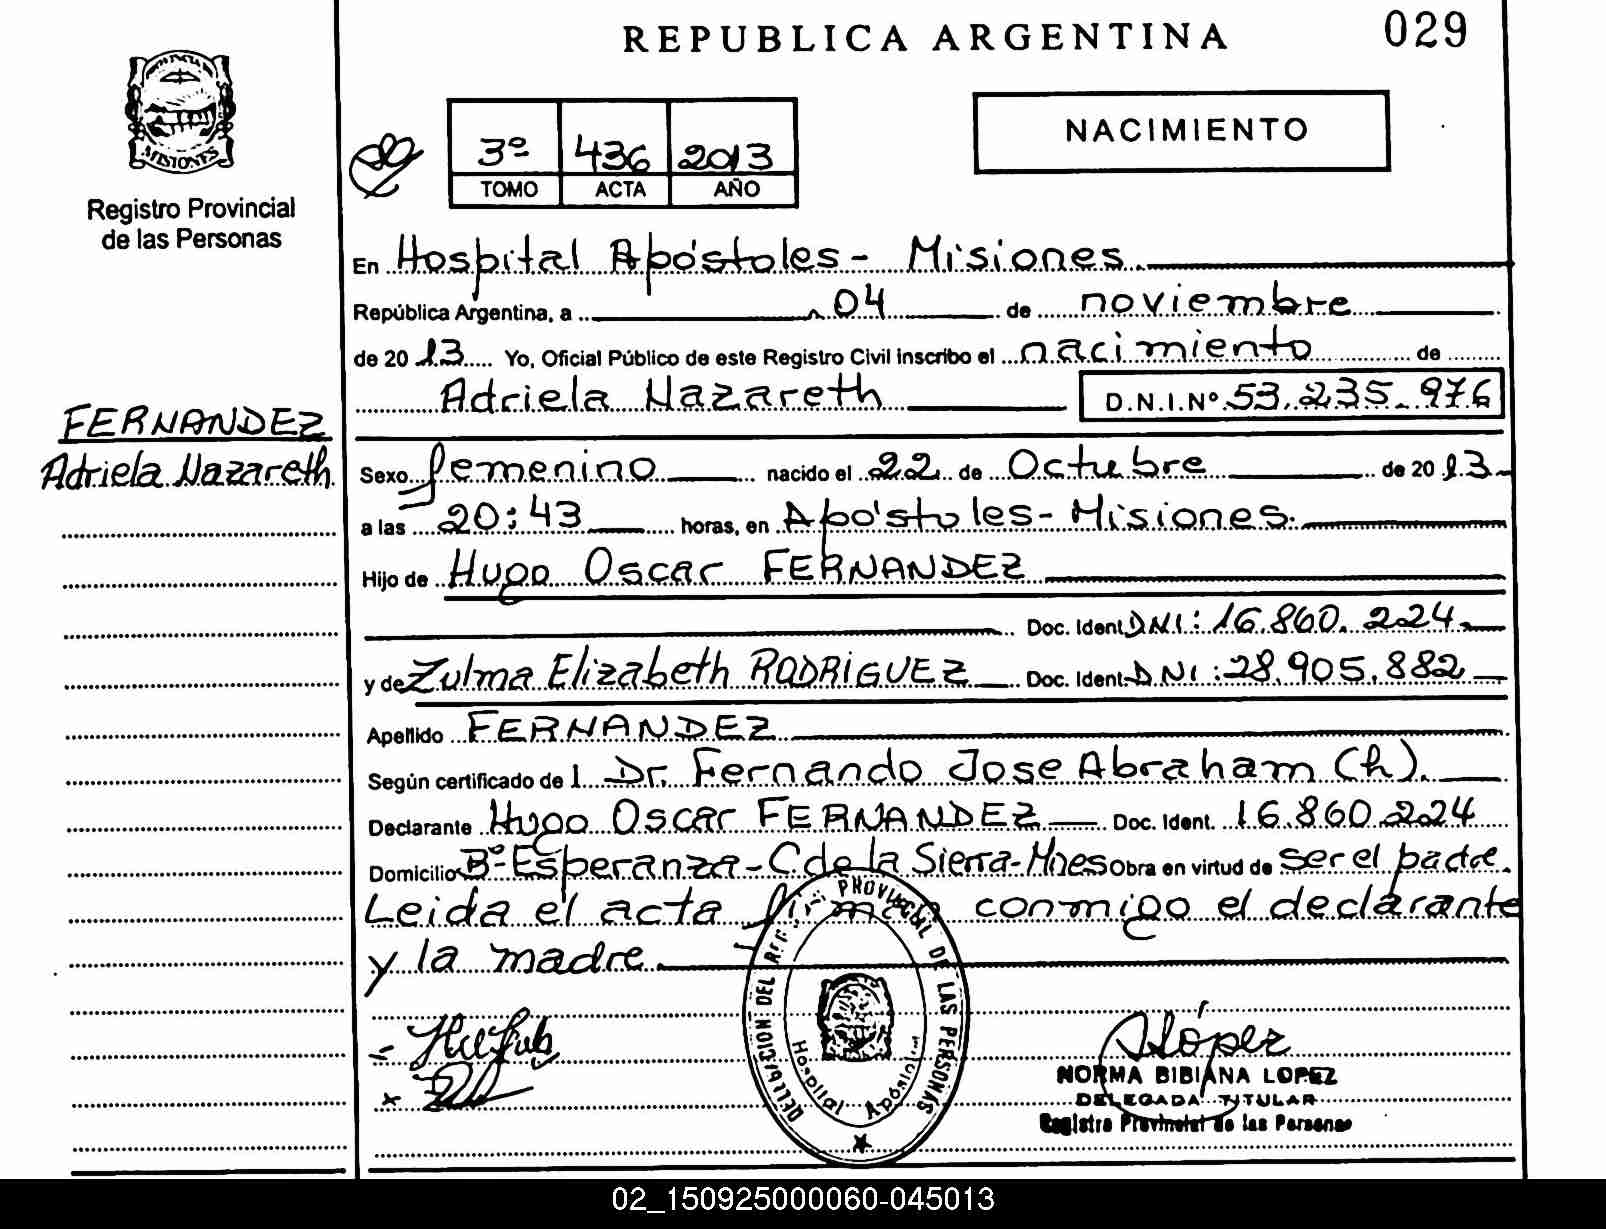 REPUBLICA ARGENTINA
029
MISIONES
Registro Provincial
de las Personas
3º 436 2013
TOMO ACTA AÑO
NACIMIENTO
En Hospital Apóstoles - Misiones.
República Argentina, a 04 de noviembre
de 2013 Yo, Oficial Público de este Registro Civil inscribo el nacimiento de
Adriela Nazareth D.N.I.Nº 53.235.976
FERNANDEZ
Adriela Nazareth.
Sexo femenino nacido el 22 de Octubre de 2013
a las 20:43 horas, en Apóstoles - Misiones.
Hijo de Hugo Oscar FERNANDEZ
Doc. Ident. DNI: 16.860.224
y de Zulma Elizabeth RODRIGUEZ Doc. Ident. DNI: 28.905.882
Apellido FERNANDEZ
Según certificado de l Dr. Fernando Jose Abraham (h).
Declarante Hugo Oscar FERNANDEZ Doc. Ident. 16.860.224
Domicilio Bº Esperanza - C. de la Sierra - Mnes Obra en virtud de ser el padre.
Leida el acta firman conmigo el declarante
y la madre.
DELEGACION DEL REG. PROVINCIAL DE LAS PERSONAS
Hospital Apóstoles
López
NORMA BIBIANA LOPEZ
DELEGADA TITULAR
Registro Provincial de las Personas
02_150925000060-045013